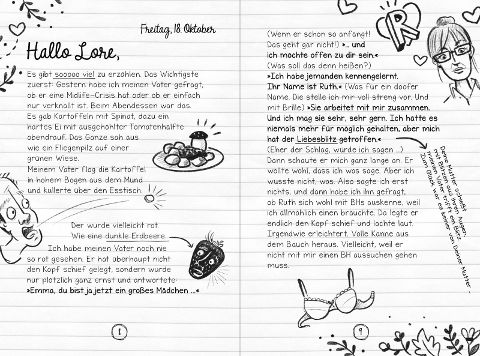 Freitag, 18. Oktober
Hallo Lore,
Es gibt sooooo viel zu erzählen. Das Wichtigste
zuerst: Gestern habe ich meinen Vater gefragt,
ob er eine Midlife-Crisis hat oder ob er einfach
nur verknallt ist. Beim Abendessen war das.
Es gab Kartoffeln mit Spinat, dazu ein
hartes Ei mit ausgehöhlter Tomatenhälfte
obendrauf. Das Ganze sah aus
wie ein Fliegenpilz auf einer
grünen Wiese.
Meinem Vater flog die Kartoffel
in hohem Bogen aus dem Mund
und kullerte über den Esstisch.
Der wurde vielleicht rot.
Wie eine dunkle Erdbeere.
Ich habe meinen Vater noch nie
so rot gesehen. Er hat überhaupt nicht
den Kopf schief gelegt, sondern wurde
nur plötzlich ganz ernst und antwortete:
»Emma, du bist ja jetzt ein großes Mädchen ...«
8
(Wenn er schon so anfängt!
Das geht gar nicht!) »... und
ich möchte offen zu dir sein.«
(Was soll das denn heißen?)
»Ich habe jemanden kennengelernt.
Ihr Name ist Ruth.« (Was für ein doofer
Name. Die stelle ich mir voll streng vor. Und
mit Brille.) »Sie arbeitet mit mir zusammen.
Und ich mag sie sehr, sehr gern. Ich hatte es
niemals mehr für möglich gehalten, aber mich
hat der Liebesblitz getroffen.«
(Eher der Schlag, würde ich sagen ...)
Dann schaute er mich ganz lange an. Er
wollte wohl, dass ich was sage. Aber ich
wusste nicht, was. Also sagte ich erst
nichts, und dann habe ich ihn gefragt,
ob Ruth sich wohl mit BHs auskenne, weil
ich allmählich einen bräuchte. Da legte er
endlich den Kopf schief und lachte laut.
Irgendwie erleichtert. Volle Kanne aus
dem Bauch heraus. Vielleicht, weil er
nicht mit mir einen BH aussuchen gehen
muss.
9
R